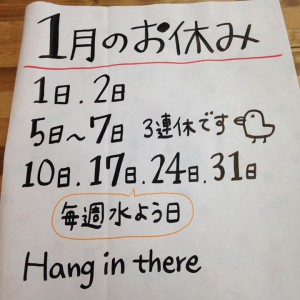 1月のお休み
1日.2日
5日～7日 3連休です
10日.17日.24日.31日
毎週水よう日
Hang in there